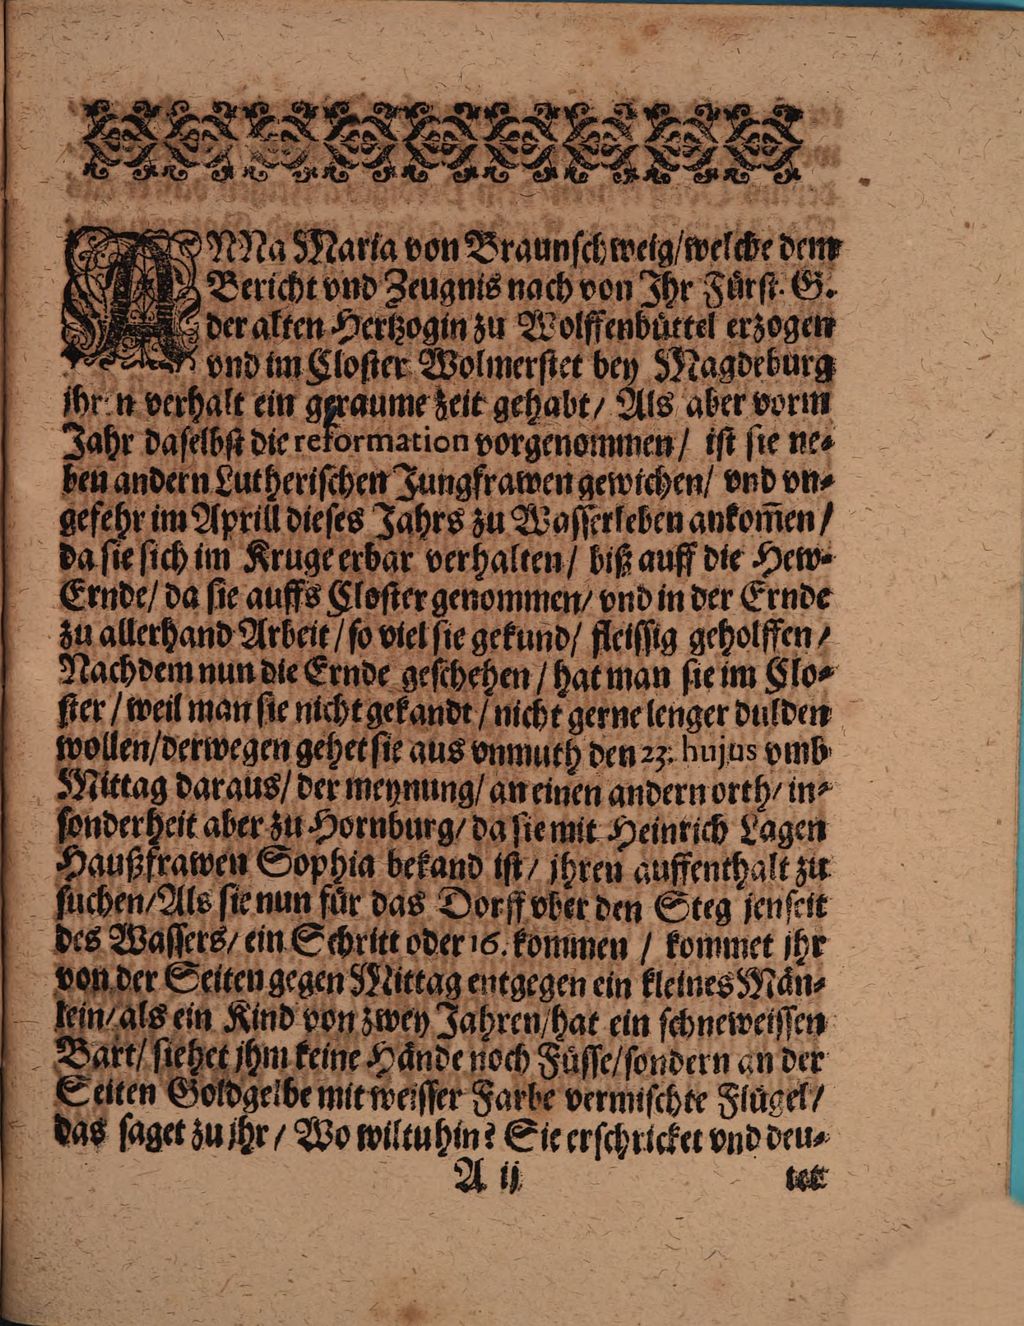 ANNa Maria von Braunschweig/welche dem
Bericht vnd Zeugnis nach von Ihr Fürst. G.
der alten Hertzogin zu Wolffenbüttel erzogen
vnd im Closter Wolmerstet bey Magdeburg
jhren verhalt ein geraume zeit gehabt/ Als aber vorm
Jahr daselbst die reformation vorgenommen/ ist sie ne-
ben andern Lutherischen Jungfrawen gewichen/ vnd vn-
gefehr im Aprill dieses Jahrs zu Wasserleben ankom̃en/
da sie sich im Kruge erbar verhalten/ biß auff die Hew-
Ernde/ da sie auffs Closter genommen/ vnd in der Ernde
zu allerhand Arbeit/ so viel sie gekund/ fleissig geholffen/
Nachdem nun die Ernde geschehen/ hat man sie im Clo-
ster/ weil man sie nicht gekandt/ nicht gerne lenger dulden
wollen/derwegen gehet sie aus vnmuth den 23. hujus vmb
Mittag daraus/ der meynung/ an einen andern orth/ in-
sonderheit aber zu Hornburg/ da sie mit Heinrich Lagen
Haußfrawen Sophia bekand ist/ jhren auffenthalt zu
suchen/Als sie nun für das Dorff vber den Steg jenseit
des Wassers/ ein Schritt oder 16. kommen / kommet jhr
von der Seiten gegen Mittag entgegen ein kleines Män-
lein/als ein Kind von zwey Jahren/hat ein schneweissen
Bart/ siehet jhm keine Hände noch Füsse/sondern an der
Seiten Goldgelbe mit weisser Farbe vermischte Flügel/
das saget zu jhr/ Wo wiltu hin? Sie erschricket vnd deu-
A ij tet